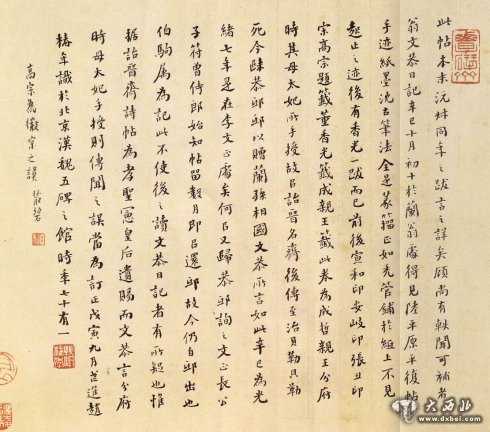 此帖本末沅叔同年之跋言之詳矣顧尚有軼聞可補者
翁文恭日記辛巳十月初十於蘭翁處得見陸平原平復帖
手迹紙墨沈古筆法全是篆籀正如禿管鋪於紙上不見
起止之迹後有香光一跋而已前後宣和印安岐印張丑印
宗高宗題籤董香光籤成親王籤此卷為成哲親王分府
時其母太妃所手授故㠯詒晉名齋後傳至治貝勒貝勒
死今歸恭邸邸以贈蘭孫相國文恭所言如此辛巳為光
緒七年是在李文正處矣何㠯又歸恭邸詢之文正長公
子符曾侍郎始知帖留數月即㠯還邸故今仍自邸出也
伯駒屬為記此不使後之讀文恭日記者有所疑也惟
據詒晉齋詩帖為孝聖憲皇后遺賜而文恭言分府
時母太妃手授則傳聞之誤當為訂正戊寅九月武進趙
椿年識於北京漢魏五碑之館時年七十有一
高宗為徽宗之誤
大西北
www.dxbei.com